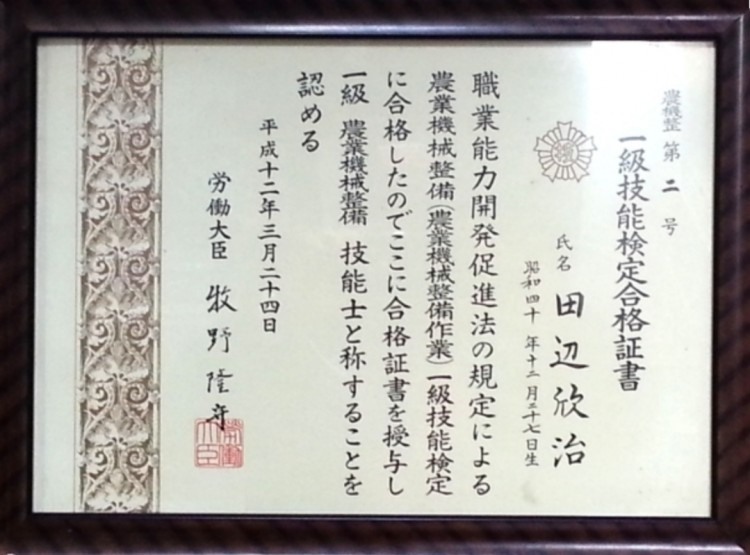 農機整 第 二 号
一級技能検定合格証書
氏名 田辺欣治
昭和四十年十二月二十七日生
職業能力開発促進法の規定による
農業機械整備(農業機械整備作業)一級技能検定
に合格したのでここに合格証書を授与し
一級 農業機械整備 技能士と称することを
認める
平成十二年三月二十四日
労働大臣 牧野隆守
労働大臣